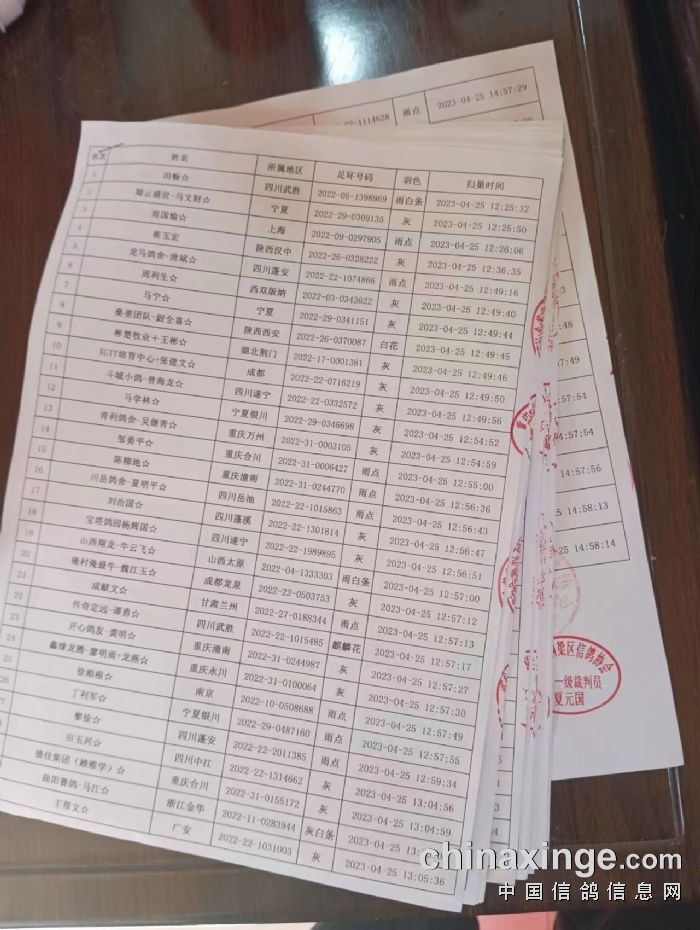 名次 姓名 所属地区 足环号码 羽色 归巢时间
1 田畅☆ 四川武胜 2022-05-1398969 雨白条 2023-04-25 12:25:32
2 翔云盛世-马文财☆ 宁夏 2022-29-0309135 灰 2023-04-25 12:25:50
3 周国愉☆ 上海 2022-09-0297905 雨点 2023-04-25 12:26:06
4 崔玉宏 陕西汉中 2022-26-0328222 灰 2023-04-25 12:36:35
5 龙马鸽舍-唐斌☆ 四川蓬安 2022-22-1074866 雨点 2023-04-25 12:49:16
6 周利生☆ 西双版纳 2022-03-0343622 灰 2023-04-25 12:49:40
7 马宁☆ 宁夏 2022-29-0341151 灰 2023-04-25 12:49:44
8 桑基团队-尉全喜☆ 陕西西安 2022-26-0370087 白花 2023-04-25 12:49:45
9 彬楚牧业+王彬☆ 湖北荆门 2022-17-0001381 灰 2023-04-25 12:49:46
10 XGTT培育中心+张建文☆ 成都 2022-22-0716219 灰 2023-04-25 12:49:50
11 斗城小鸽-曾海龙☆ 四川遂宁 2022-22-0332572 灰 2023-04-25 12:49:56
12 马学林☆ 宁夏银川 2022-29-0346698 灰 2023-04-25 12:54:52
13 青利鸽舍-吴继青☆ 重庆万州 2022-31-0003105 灰 2023-04-25 12:54:59
14 邹勇平☆ 重庆合川 2022-31-0006427 雨点 2023-04-25 12:55:00
15 陈柳地☆ 重庆潼南 2022-31-0244770 雨点 2023-04-25 12:56:36
16 川岳鸽舍-夏明平☆ 四川岳池 2022-22-1015863 雨点 2023-04-25 12:56:43
17 刘治国☆ 四川蓬溪 2022-22-1301814 灰 2023-04-25 12:56:47
18 宝塔鸽园杨辉国☆ 四川遂宁 2022-22-1989895 灰 2023-04-25 12:56:51
19 山西翔龙-牛云飞☆ 山西太原 2022-04-1333303 雨白条 2023-04-25 12:57:00
20 俺村俺最牛-魏江玉☆ 成都龙泉 2022-22-0503753 灰 2023-04-25 12:57:12
21 成献文☆ 甘肃兰州 2022-27-0188344 灰 2023-04-25 12:57:13
22 传奇定远-谭勇☆ 四川武胜 2022-22-1015485 麒麟花 2023-04-25 12:57:17
23 开心鸽友-龚明☆ 重庆潼南 2022-31-0244987 灰 2023-04-25 12:57:27
24 鑫缘龙腾-廖明雨+龙燕☆ 重庆永川 2022-31-0100064 灰 2023-04-25 12:57:30
25 徐顺彬☆ 南京 2022-10-0508688 雨点 2023-04-25 12:57:49
丁利军☆ 宁夏银川 2022-29-0487160 雨点 2023-04-25 12:57:55
黎徐☆ 四川蓬安 2022-22-2011385 雨点 2023-04-25 12:59:34
田玉兴☆ 四川中江 2022-22-1314662 灰 2023-04-25 13:04:56
德佳集团(赖维学)☆ 重庆合川 2022-31-0155172 灰 2023-04-25 13:04:59
曲阳赛鸽-马江☆ 浙江金华 2022-11-0283944 灰白条 2023-04-25
王帮文☆ 广安 2022-22-1031003 灰 2023-04-25 13:05:36
-1114628 雨点 2023-04-25 14:57:29
14:57:56
14:58:13
14:58:14
梁区信鸽协会
一级裁判员
夏元国
chinaxinge.com
中国信鸽信息网